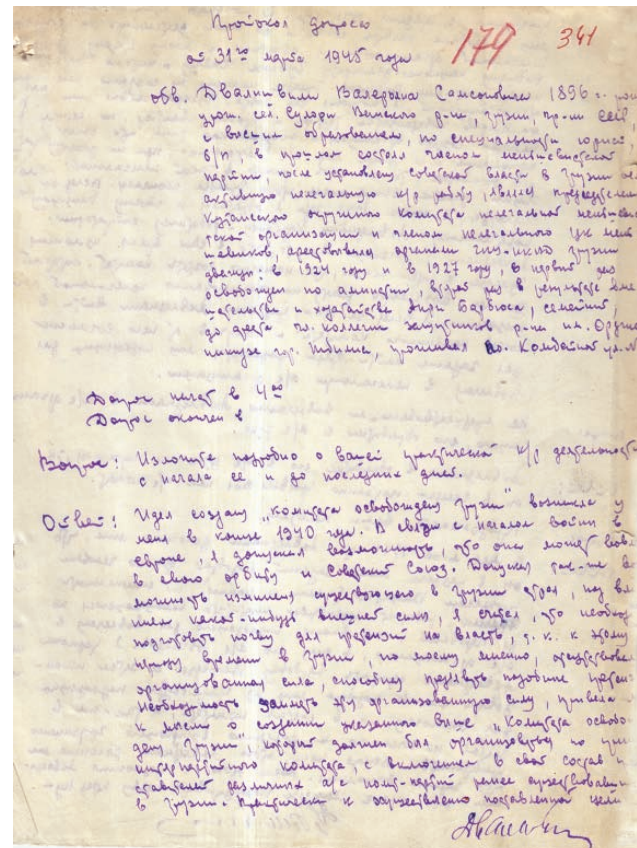 Протокол допроса
от 31го марта 1945 года
179 341
обв. Двалишвили Валерьяна Самсоновича 1896 г.
урож. сел. Сулори Ванского р-на, грузин, гр-ин СССР
с высшим образованием, по специальности юрист,
б/п, в прошлом состоял членом меньшевистской
партии, после установления советской власти в Грузии
активную нелегальную к/р работу, являлся председателем
Кутаисского окружного комитета нелегальной
организации и членом нелегального ЦК
арестовывался органами ГПУ-НКВД Грузии
дважды: в 1924 году и в 1927 году, в первый раз
освобожден по амнистии, второй раз в результате
и ходатайства Анри Барбюса, семейный,
до ареста чл. коллегии защитников р-на им.
гор. Тбилиси, проживал по
Допрос начат в 4 00
Допрос окончен в
Вопрос: Изложите подробно о вашей практической к/р деятельности
с начала ее и до последних дней.
Ответ: Идея создания "комитета освобождения Грузии" возникла у
меня в конце 1940 года. В связи с началом войны в
европе, я допускал возможность, что она может
в свою орбиту и Советский Союз. Допуская так-же
изменения существующего в Грузии строя, под
какой-нибудь внешней силы, я считал, что
подготовить почву для претензий на власть, т.к. к этому
времени в Грузии, по моему мнению,
организованная сила способная предъявить подобные
Необходимость создать эту организованную силу, привела
к мысли о создании указанного выше "Комитета
Грузии", который должен был организоваться по
интерпартийного комитета, с включением в свой состав
различных а/с полит-партий ранее
в Грузии. Практически к осуществлению поставленной цели